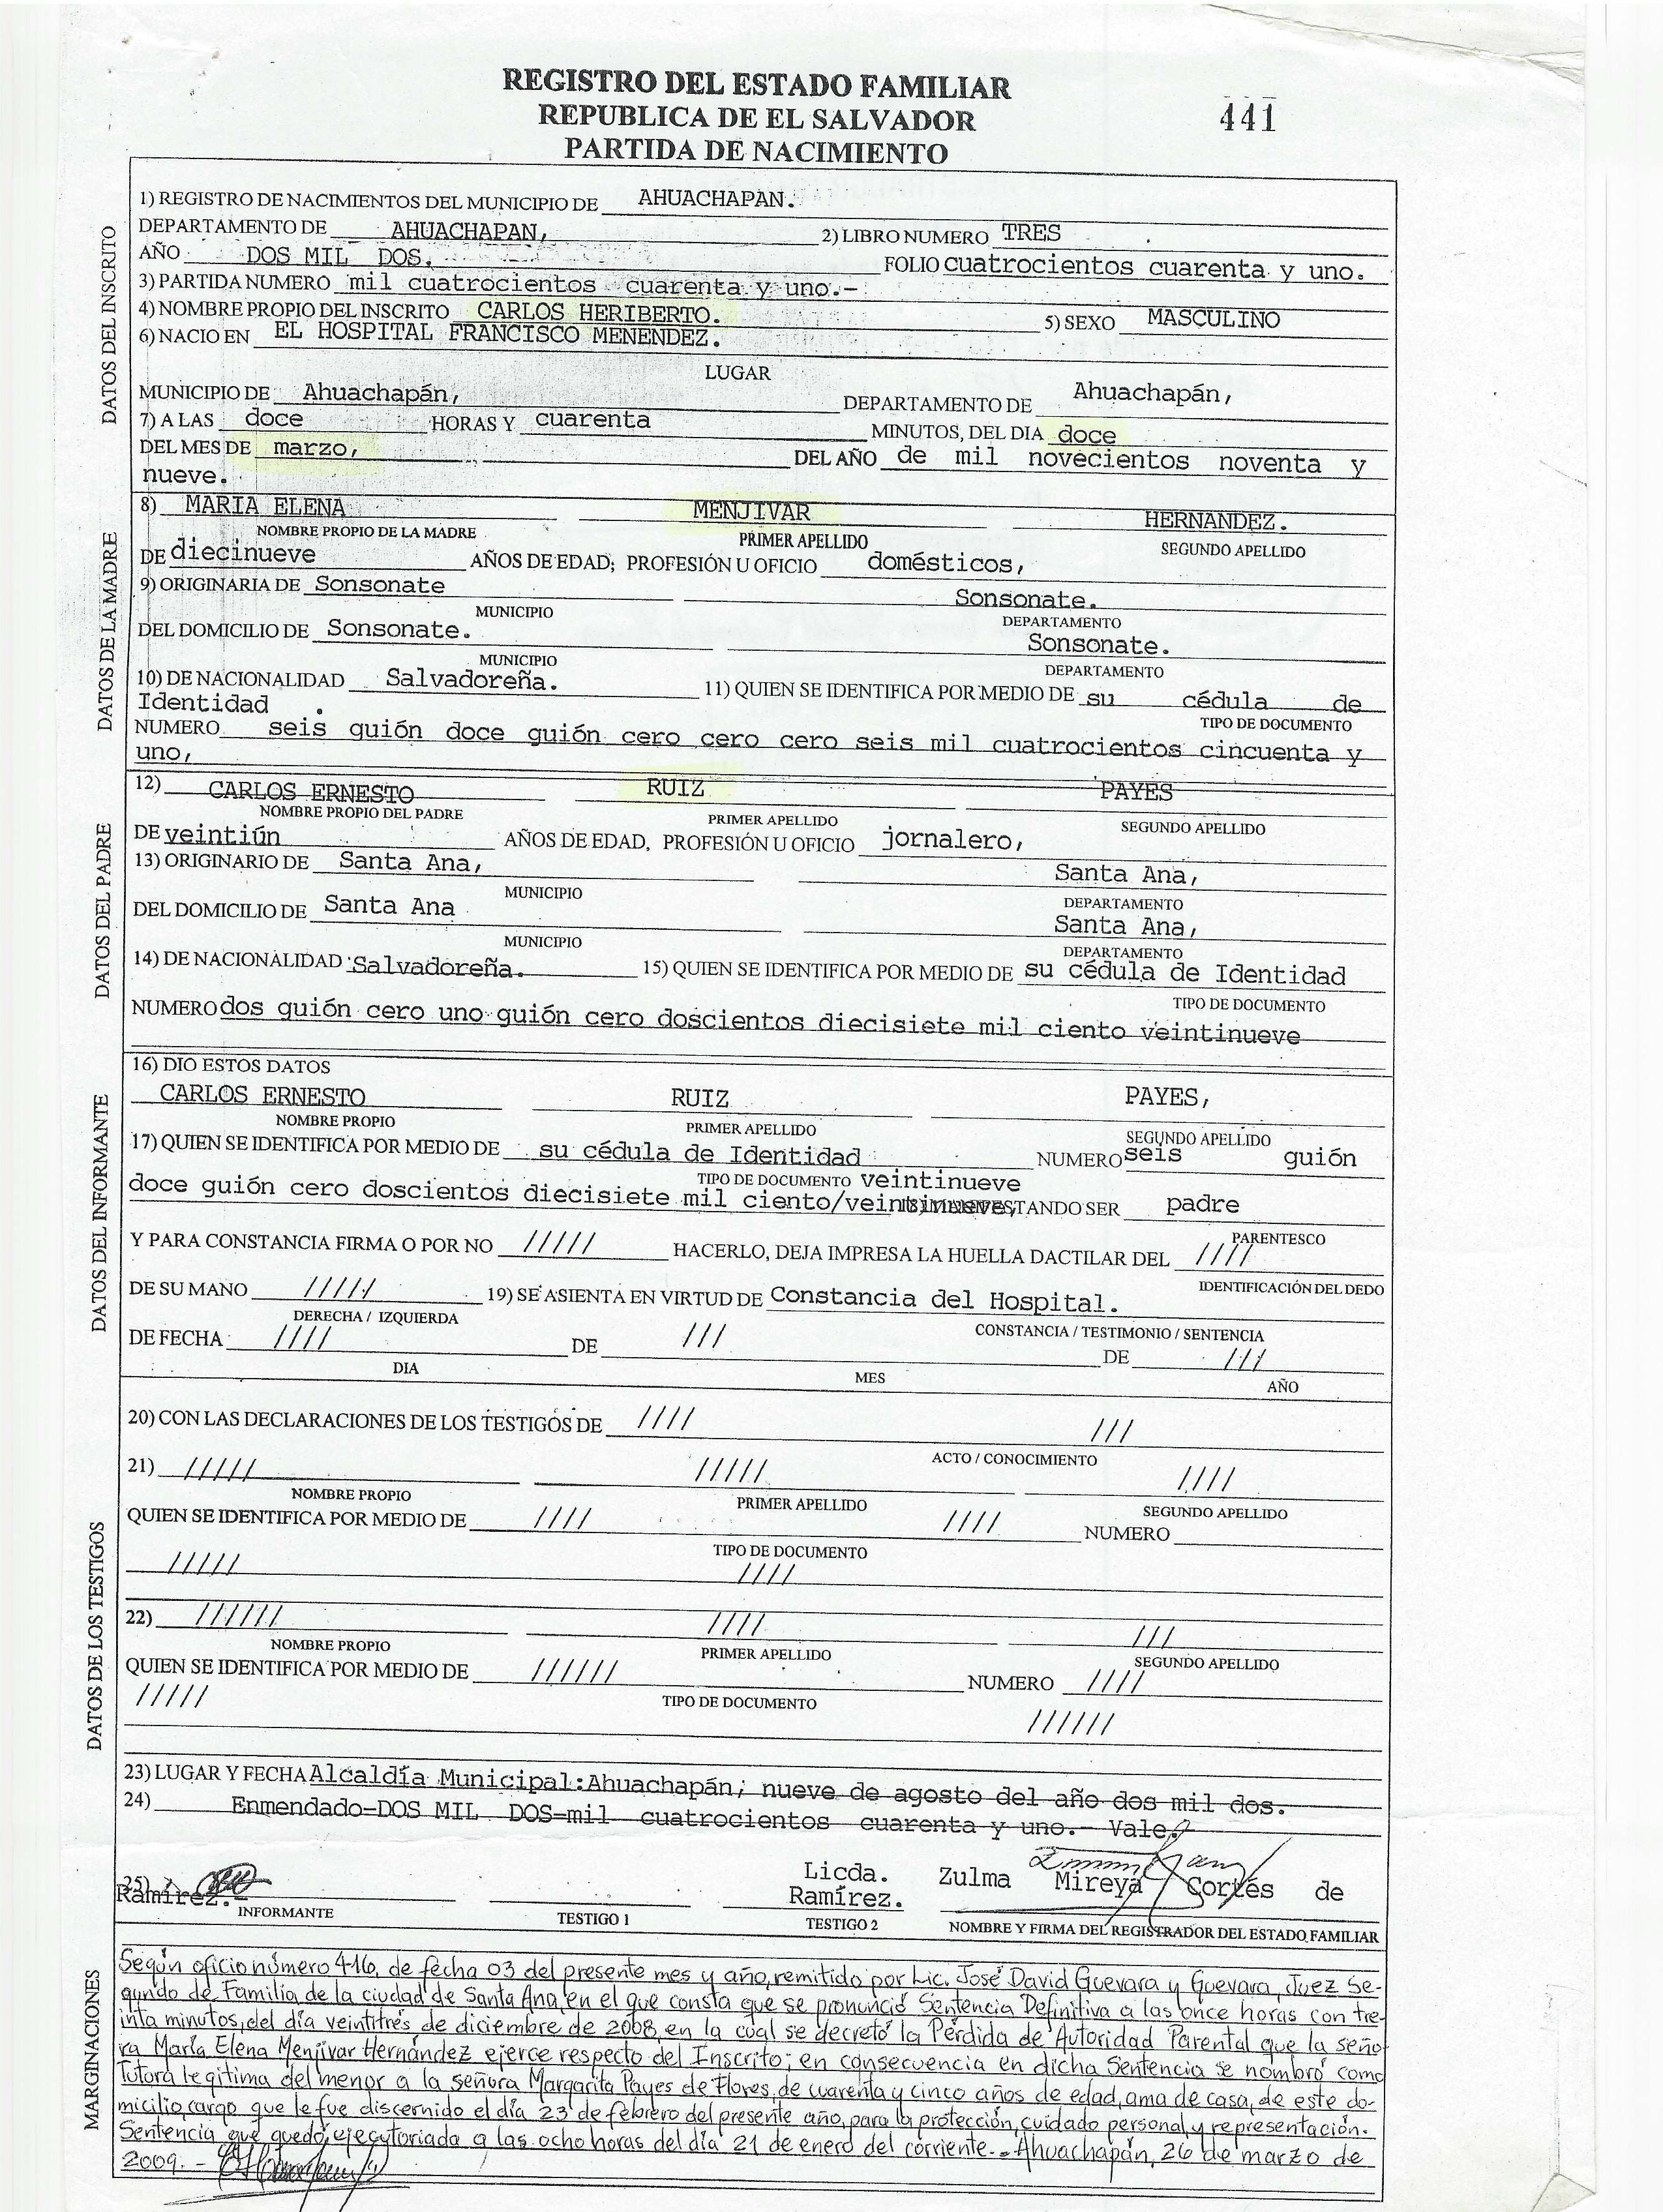 REGISTRO DEL ESTADO FAMILIAR
REPUBLICA DE EL SALVADOR
PARTIDA DE NACIMIENTO
441
DATOS DEL INSCRITO
1) REGISTRO DE NACIMIENTOS DEL MUNICIPIO DE AHUACHAPAN.
DEPARTAMENTO DE AHUACHAPAN, 2) LIBRO NUMERO TRES
AÑO DOS MIL DOS. FOLIO cuatrocientos cuarenta y uno.
3) PARTIDA NUMERO mil cuatrocientos cuarenta y uno.-
4) NOMBRE PROPIO DEL INSCRITO CARLOS HERIBERTO. 5) SEXO MASCULINO
6) NACIO EN EL HOSPITAL FRANCISCO MENENDEZ.
LUGAR
MUNICIPIO DE Ahuachapán, DEPARTAMENTO DE Ahuachapán,
7) A LAS doce HORAS Y cuarenta MINUTOS, DEL DIA doce
DEL MES DE marzo, DEL AÑO de mil novecientos noventa y
nueve.
DATOS DE LA MADRE
8) MARIA ELENA MENJIVAR HERNANDEZ.
NOMBRE PROPIO DE LA MADRE PRIMER APELLIDO SEGUNDO APELLIDO
DE diecinueve AÑOS DE EDAD; PROFESIÓN U OFICIO domésticos,
9) ORIGINARIA DE Sonsonate Sonsonate.
MUNICIPIO DEPARTAMENTO
DEL DOMICILIO DE Sonsonate. Sonsonate.
MUNICIPIO DEPARTAMENTO
10) DE NACIONALIDAD Salvadoreña. 11) QUIEN SE IDENTIFICA POR MEDIO DE su cédula de
Identidad . TIPO DE DOCUMENTO
NUMERO seis guión doce guión cero cero cero seis mil cuatrocientos cincuenta y
uno,
DATOS DEL PADRE
12) CARLOS ERNESTO RUIZ PAYES
NOMBRE PROPIO DEL PADRE PRIMER APELLIDO SEGUNDO APELLIDO
DE veintiún AÑOS DE EDAD, PROFESIÓN U OFICIO jornalero,
13) ORIGINARIO DE Santa Ana, Santa Ana,
MUNICIPIO DEPARTAMENTO
DEL DOMICILIO DE Santa Ana Santa Ana,
MUNICIPIO DEPARTAMENTO
14) DE NACIONALIDAD Salvadoreña. 15) QUIEN SE IDENTIFICA POR MEDIO DE su cédula de Identidad
TIPO DE DOCUMENTO
NUMERO dos guión cero uno guión cero doscientos diecisiete mil ciento veintinueve
DATOS DEL INFORMANTE
16) DIO ESTOS DATOS
CARLOS ERNESTO RUIZ PAYES,
NOMBRE PROPIO PRIMER APELLIDO SEGUNDO APELLIDO
17) QUIEN SE IDENTIFICA POR MEDIO DE su cédula de Identidad NUMERO seis guión
TIPO DE DOCUMENTO veintinueve
doce guión cero doscientos diecisiete mil ciento/veintinueve, 18) MANIFESTANDO SER padre
PARENTESCO
Y PARA CONSTANCIA FIRMA O POR NO ///// HACERLO, DEJA IMPRESA LA HUELLA DACTILAR DEL ////
IDENTIFICACIÓN DEL DEDO
DE SU MANO ///// 19) SE ASIENTA EN VIRTUD DE Constancia del Hospital.
DERECHA / IZQUIERDA CONSTANCIA / TESTIMONIO / SENTENCIA
DE FECHA //// DE /// DE ///
DIA MES AÑO
DATOS DE LOS TESTIGOS
20) CON LAS DECLARACIONES DE LOS TESTIGOS DE //// ///
ACTO / CONOCIMIENTO
21) ///// ///// ////
NOMBRE PROPIO PRIMER APELLIDO SEGUNDO APELLIDO
QUIEN SE IDENTIFICA POR MEDIO DE //// //// NUMERO
TIPO DE DOCUMENTO
///// ////
22) ////// //// ///
NOMBRE PROPIO PRIMER APELLIDO SEGUNDO APELLIDO
QUIEN SE IDENTIFICA POR MEDIO DE ////// NUMERO ////
///// TIPO DE DOCUMENTO
//////
23) LUGAR Y FECHA Alcaldía Municipal:Ahuachapán; nueve de agosto del año dos mil dos.
24) Enmendado-DOS MIL DOS-mil cuatrocientos cuarenta y uno.- Vale.
25) Licda. Zulma Mireya Cortés de
Ramírez.- Ramírez.
INFORMANTE TESTIGO 1 TESTIGO 2 NOMBRE Y FIRMA DEL REGISTRADOR DEL ESTADO FAMILIAR
MARGINACIONES
Según oficio número 416, de fecha 03 del presente mes y año, remitido por Lic. José David Guevara y Guevara, Juez Se-
gundo de Familia de la ciudad de Santa Ana, en el que consta que se pronunció Sentencia Definitiva a las once horas con tre-
inta minutos, del día veintitrés de diciembre de 2008, en la cual se decretó la Pérdida de Autoridad Parental que la seño
ra María Elena Menjivar Hernández ejerce respecto del Inscrito; en consecuencia en dicha Sentencia se nombró como
Tutora Legitima del menor a la señora Margarita Payes de Flores, de cuarenta y cinco años de edad, ama de casa, de este do-
micilio, cargo que le fue discernido el día 23 de febrero del presente año, para la protección, cuidado personal, y representación.
Sentencia que quedó ejecutoriada a las ocho horas del día 21 de enero del corriente.- Ahuachapán, 26 de marzo de
2009.-